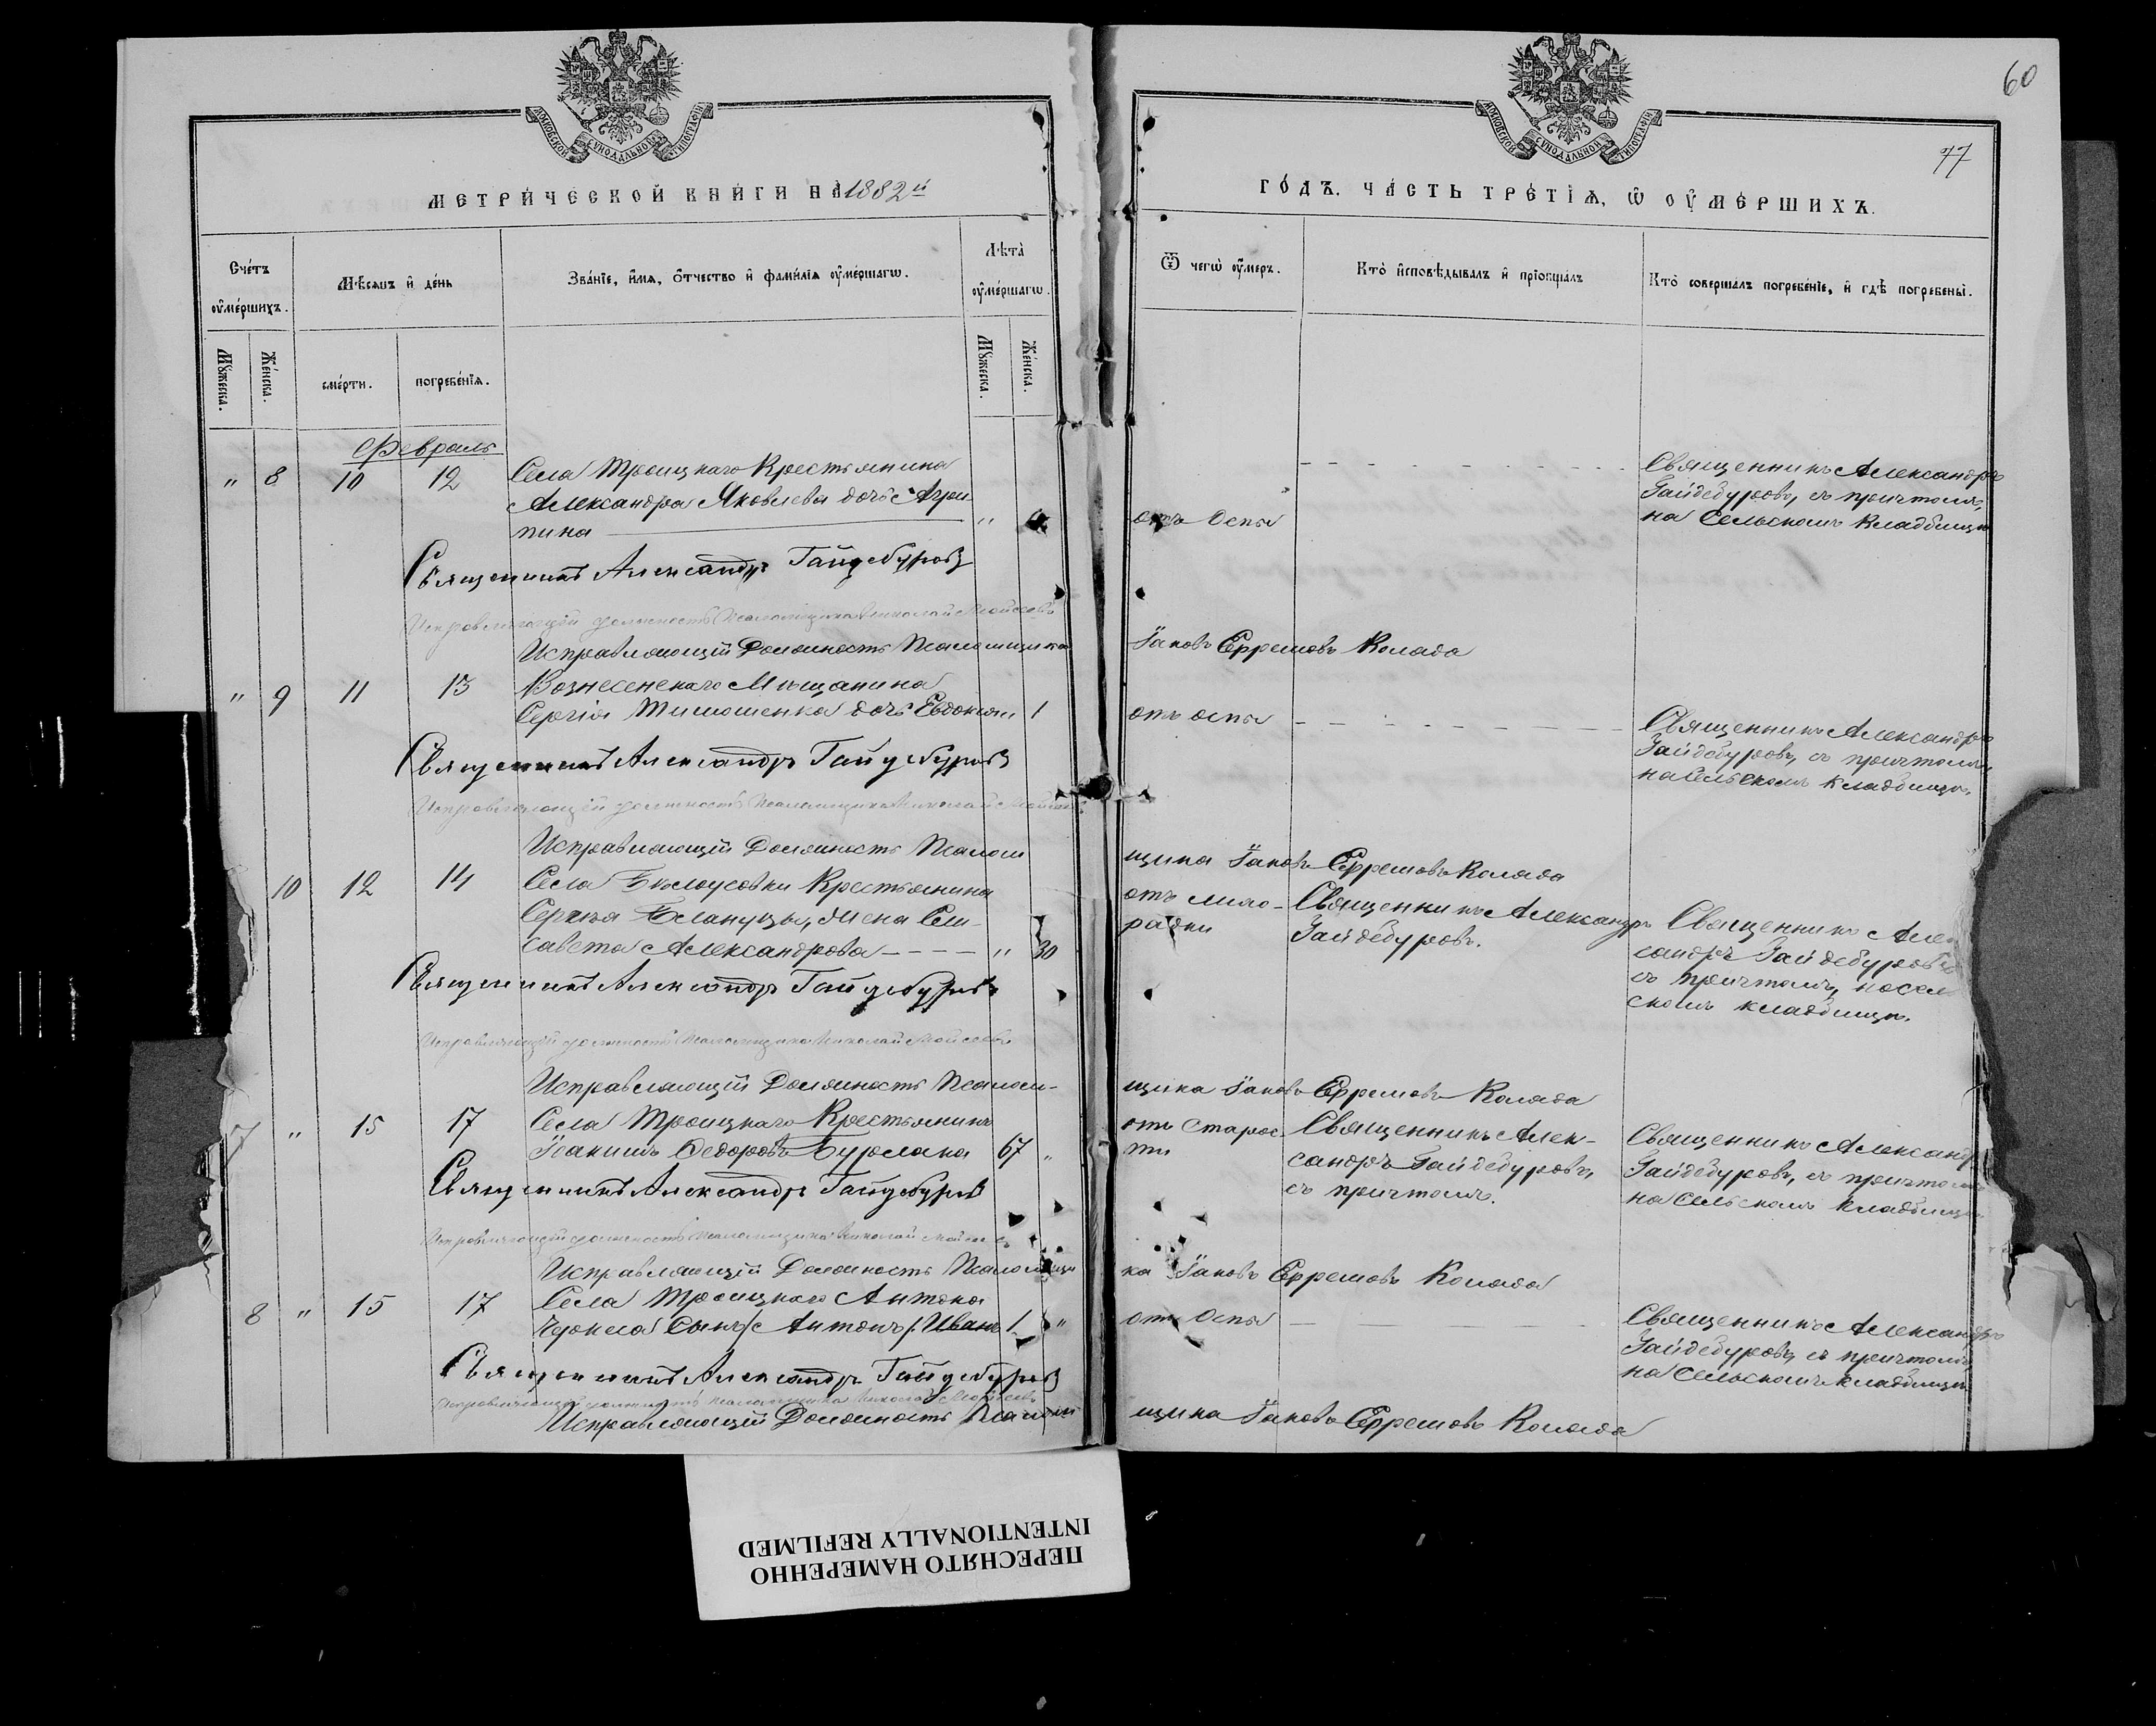 60
77
МОСКОВСКОЙ СѴНОДАЛЬНОЙ ТИПОГРАФІИ
МОСКОВСКОЙ СѴНОДАЛЬНОЙ ТИПОГРАФІИ
МЕТРИЧЕСКОЙ КНИГИ НА 1882й
ГОДЪ. ЧАСТЬ ТРЕТІѦ, Ѡ ОУМЕРШИХЪ.
Счетъ оумершихъ.
Мѣсяцъ и день
Званіе, имя, отчество и фамилія оумершагѡ.
Лѣта оумершагѡ.
Ѿ чегѡ оумеръ.
Кто исповѣдывалъ и пріобщалъ
Кто совершалъ погребеніе, и гдѣ погребены.
Мужеска.
Женска.
смерти.
погребенія.
Мужеска.
Женска.
Февраль
" 8 10 12 Села Троицкаго Крестьянина
Александра Яковлева дочь Агри
пина "
отъ Оспы
Священникъ Александръ
Гайдебуровъ, съ причтомъ,
на Сельскомъ Кладбищѣ
Священникъ Александръ Гайдебуровъ
Исправляющій должность Псаломщика Николай Мойсеевъ
Исправляющій Должность Псаломщика Іаковъ Ефремовъ Колада
" 9 11 13 Вознесенскаго Мѣщанина
Сергія Тимошенка дочь Евдокія 1
отъ оспы
Священникъ Александръ
Гайдебуровъ, съ причтомъ,
на Сельскомъ кладбищѣ.
Священникъ Александръ Гайдебуровъ
Исправляющій должность Псаломщика Николай
Исправляющій Должность Псалом щика Іаковъ Ефремовъ Колада
10 12 14 Села Бѣлоусовки Крестьянина
Сергѣя жена Ели-
савета Александрова " 30
отъ лихо-
радки
Священникъ Александръ
Гайдебуровъ.
Священникъ Алек
сандръ Гайдебуровъ
съ причтомъ, на сель
скомъ кладбищѣ.
Священникъ Александръ Гайдебуровъ
Исправляющій должность Псаломщика Николай Мойсеевъ
Исправляющій Должность Псалом- щика Іаковъ Ефремовъ Колада
7 " 15 17 Села Троицкаго Крестьянинъ
Іоакимъ Федоровъ Бурлака 67 "
отъ старос-
ти
Священникъ Алек-
сандръ Гайдебуровъ,
съ причтомъ.
Священникъ Александ
Гайдебуровъ, съ причтомъ
на Сельскомъ кладбищѣ
Священникъ Александръ Гайдебуровъ
Исправляющій должность Псаломщика Николай
Исправляющій Должность Псаломщи ка Іаковъ Ефремовъ Колада
8 " 15 17 Села Троицкаго Антона
сынъ Антонъ Иванъ 1 "
отъ Оспы
Священникъ Александръ
Гайдебуровъ, съ причтомъ
на Сельскомъ кладбищѣ
Священникъ Александръ Гайдебуровъ
Исправляющій должность Псаломщика Николай Мойсеевъ
Исправляющій Должность Псалом щика Іаковъ Ефремовъ Колада
ПЕРЕСНЯТО НАМЕРЕННО
INTENTIONALLY REFILMED